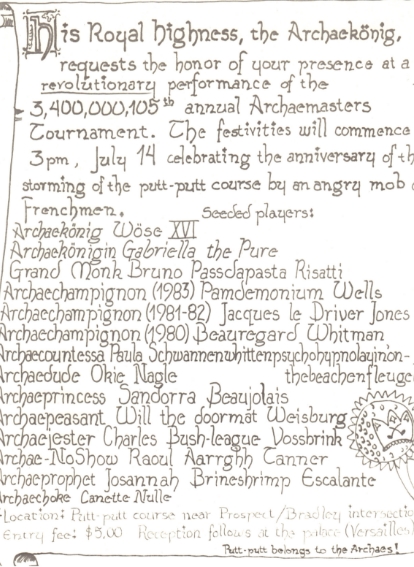 His Royal Highness, the Archaekönig,
requests the honor of your presence at a
revolutionary performance of the
3,400,000,105th annual Archaemasters
Tournament. The festivities will commence
3pm, July 14 celebrating the anniversary of th
storming of the putt-putt course by an angry mob o
Frenchmen. Seeded players:
Archaekönig Wöse XVI
Archaekönigin Gabriella the Pure
Grand Monk Bruno Passdapasta Risatti
Archaechampignon (1983) Pamdemonium Wells
Archaechampignon (1981-82) Jacques le Driver Jones
Archaechampignon (1980) Beauregard Whitman
Archaecountessa Paula Schwannenwhittenpsychohypnolayinon-
Archaedude Okie Nagle thebeachenfleuge
Archaeprincess Sandorra Beaujolais
Archaepeasant Will the doormat Weisburg
Archaejester Charles Bush-league Vossbrink
Archae-NoShow Raoul Aarrghh Tanner
Archaeprophet Josannah Brineshrimp Escalante
Archaechoke Canette Nulle
Location: Putt-putt course near Prospect/Bradley intersectio
Entry fee: $5.00 Reception follows at the palace (Versailles)
Putt-putt belongs to the Archaes!